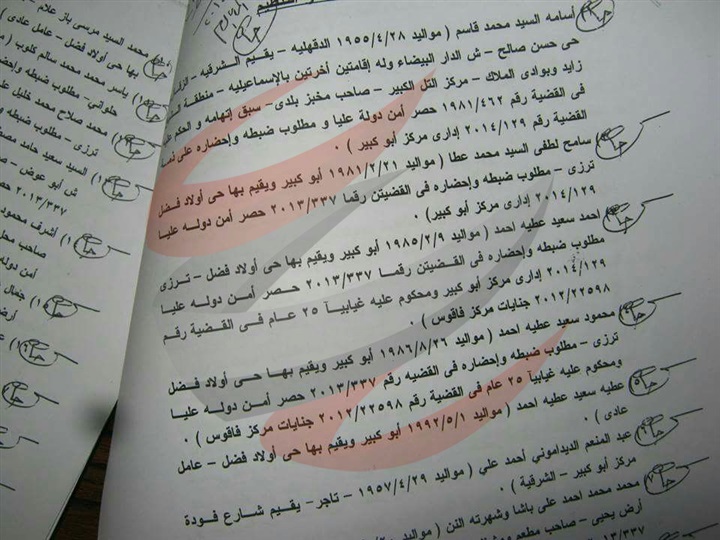 أسامه السيد محمد قاسم ( مواليد ١٩٥٥/٤/٢٨ الدقهليه – يقيم الشرقيه –
حى حسن صالح – ش الدار البيضاء وله إقامتين أخرتين بالإسماعيليه – منطقة
زايد وبوادى الملاك – مركز التل الكبير – صاحب مخبز بلدى – سبق إتهامه و الحكم
فى القضية رقم ١٩٨١/٤٦٢ حصر أمن دولة عليا و مطلوب ضبطه وإحضاره على ذمة
القضية رقم ٢٠١٤/١٢٩ إدارى مركز أبو كبير ) ٠
سامح لطفى السيد محمد عطا ( مواليد ١٩٨١/٢/٢١ أبو كبير ويقيم بها حى أولاد فضل
ترزى – مطلوب ضبطه وإحضاره فى القضيتن رقما ٢٠١٣/٣٣٧ حصر أمن دوله عليا
٢٠١٤/١٢٩ إدارى مركز أبو كبير) ٠
احمد سعيد عطيه احمد ( مواليد ١٩٨٥/٢/٩ أبو كبير ويقيم بها حى أولاد فضل – ترزى
مطلوب ضبطه وإحضاره فى القضيتن رقما ٢٠١٣/٣٣٧ حصر أمن دوله عليا
٢٠١٤/١٢٩ إدارى مركز أبو كبير ومحكوم عليه غيابياً ٢٥ عام فى القضية رقم
٢٠١٢/٢٢٥٩٨ جنايات مركز فاقوس ) ٠
محمود سعيد عطيه احمد ( مواليد ١٩٨٦/٨/٢٦ أبو كبير ويقيم بها حى أولاد فضل
ترزى – مطلوب ضبطه وإحضاره فى القضيه رقم ٢٠١٣/٣٣٧ حصر أمن دوله عليا
ومحكوم عليه غيابياً ٢٥ عام فى القضية رقم ٢٠١٢/٢٢٥٩٨ جنايات مركز فاقوس ) ٠
عطيه سعيد عطيه احمد ( مواليد ١٩٩٢/٥/١ أبو كبير ويقيم بها حى أولاد فضل – عامل
عادى ) ٠
عبد المنعم الديداموني أحمد علي ( مواليد ١٩٥٧/٤/٢٩ – تاجر– يقيم شارع فودة
مركز أبو كبير – الشرقية ) ٠
محمد محمد احمد على باشا وشهرته النن ( مواليد
أرض يحيى – صاحب مطعم
محمد السيد مرسى باز علام
بها حى أولاد فضل – عامل عادى )
ياسر محمد محمد سالم كلوب
حلوانى– مطلوب ضبطه
محمد صلاح محمد خليل
ترزى – مطلوب ضبطه
السيد سعيد حامد
ش أبو عوض –
٢٠١٣/٣٣٧
أشرف محمود
صاحب
أمن دوله
جمال
أرض